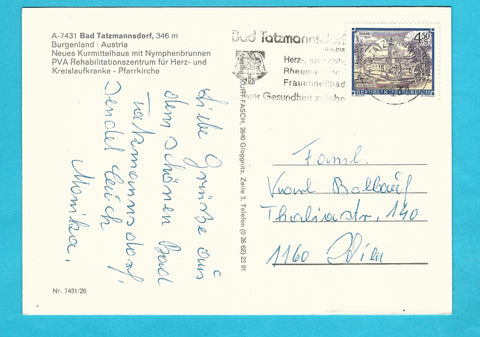 A-7431 Bad Tatzmannsdorf, 346 m
Burgenland · Austria
Neues Kurmittelhaus mit Nymphenbrunnen
PVA Rehabilitationszentrum für Herz- und
Kreislaufkranke - Pfarrkirche
Liebe Grüße aus
dem schönen Bad
Tatzmannsdorf,
sendet Euch
Monika.
Nr. 7431/26
FASCH, 2640 Gloggnitz, Zeile 3, Telefon (0 26 62) 23 01
Bad Tatzmannsdorf
Herz-,
Rheuma- und
Frauenheilbad
Ihrer Gesundheit zuliebe
4.50
REPUBLIK ÖSTERREICH
Faml.
Karl
Thaliastr. 140
1160 Wien